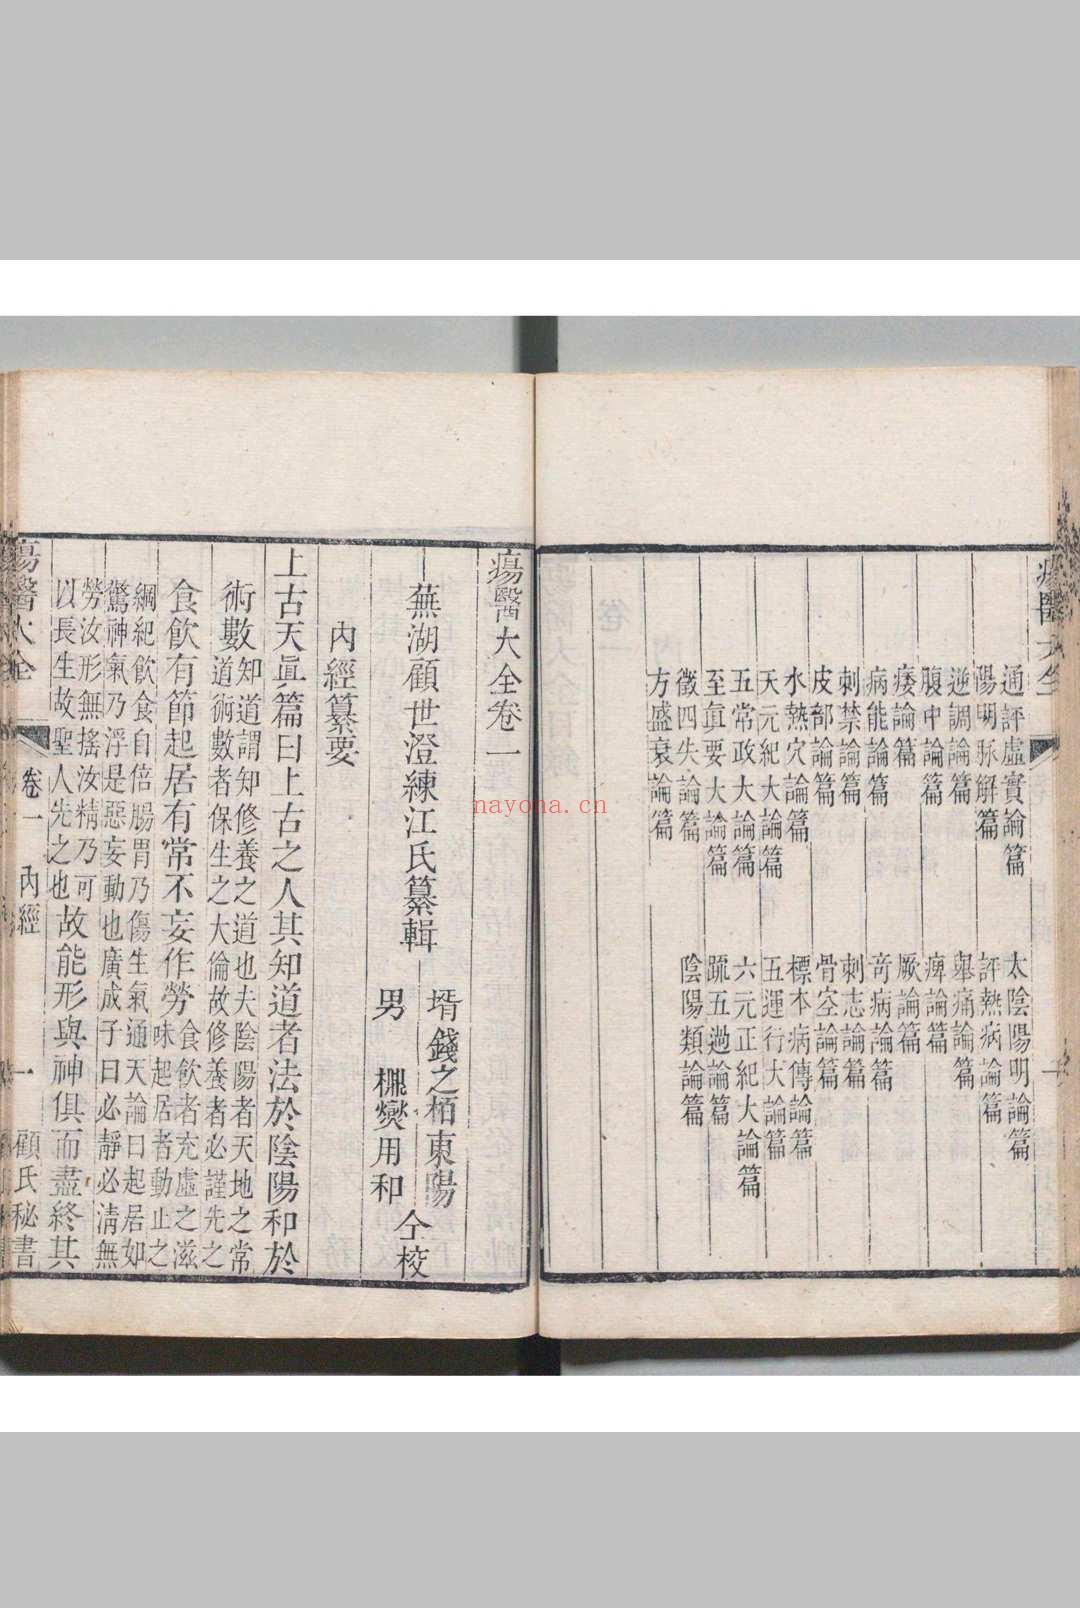 瘍醫大全
通評虛實論篇　太陰陽明論篇
陽明脉解篇　評熱病論篇
逆調論篇　舉痛論篇
腹中論篇　痺論篇
痿論篇　厥論篇
病能論篇　竒病論篇
刺禁論篇　刺志論篇
皮部論篇　骨空論篇
水熱穴論篇　標本病傳論篇
天元紀大論篇　五運行大論篇
五常政大論篇　六元正紀大論篇
至眞要大論篇　疏五過論篇
徵四失論篇　陰陽類論篇
方盛衰論篇
瘍醫大全卷一
蕪湖顧世澄練江氏纂輯
壻錢之栢東陽
男　㰚爕用和
仝校
內經纂要
上古天眞篇曰上古之人其知道者法於陰陽和於
術數知道謂知修養之道也夫陰陽者天地之常
道術數者保生之大倫故修養者必謹先之
食飲有節起居有常不妄作勞食飲者充虛之滋
味起居者動止之
綱紀飲食自倍腸胃乃傷生氣通天論曰起居如
驚神氣乃浮是惡妄動也廣成子曰必靜必清無
勞汝形無搖汝精乃可
以長生故聖人先之也故能形與神俱而盡終其
瘍醫大全　卷一　內經　一　顧氏秘書
nayona.cn